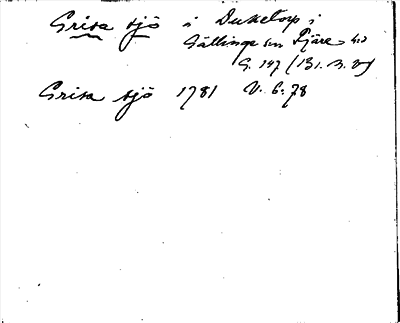 Grisa sjö i Dusetorp i
Gällinge sn Fjäre hd
G. 147 (Bl. 3. V)
Grisa sjö 1781 V. 6:78